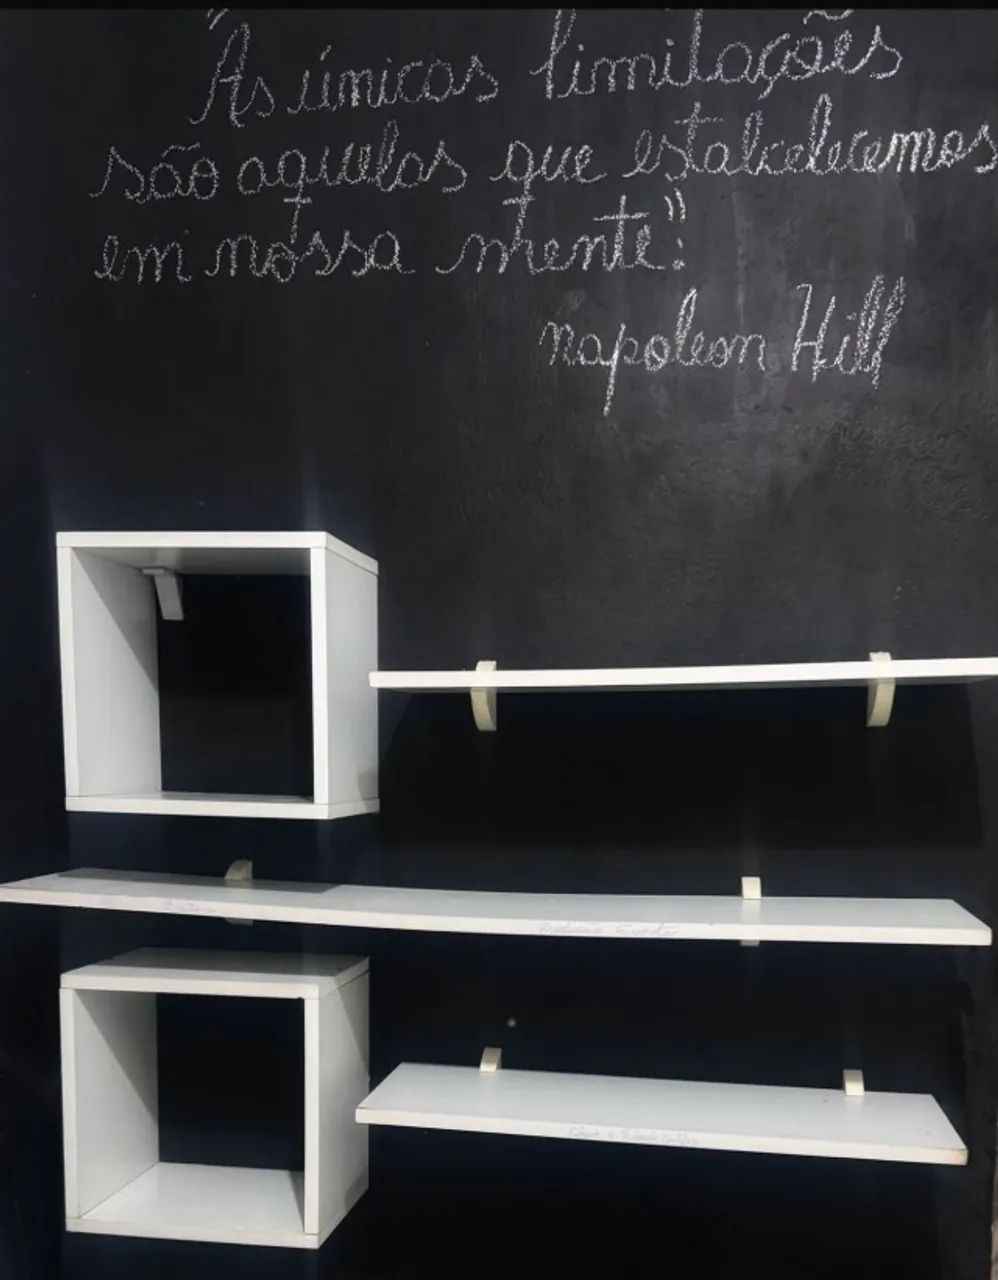 "As únicas limitações
são aquelas que estabelecemos
em nossa mente".
napoleon Hill